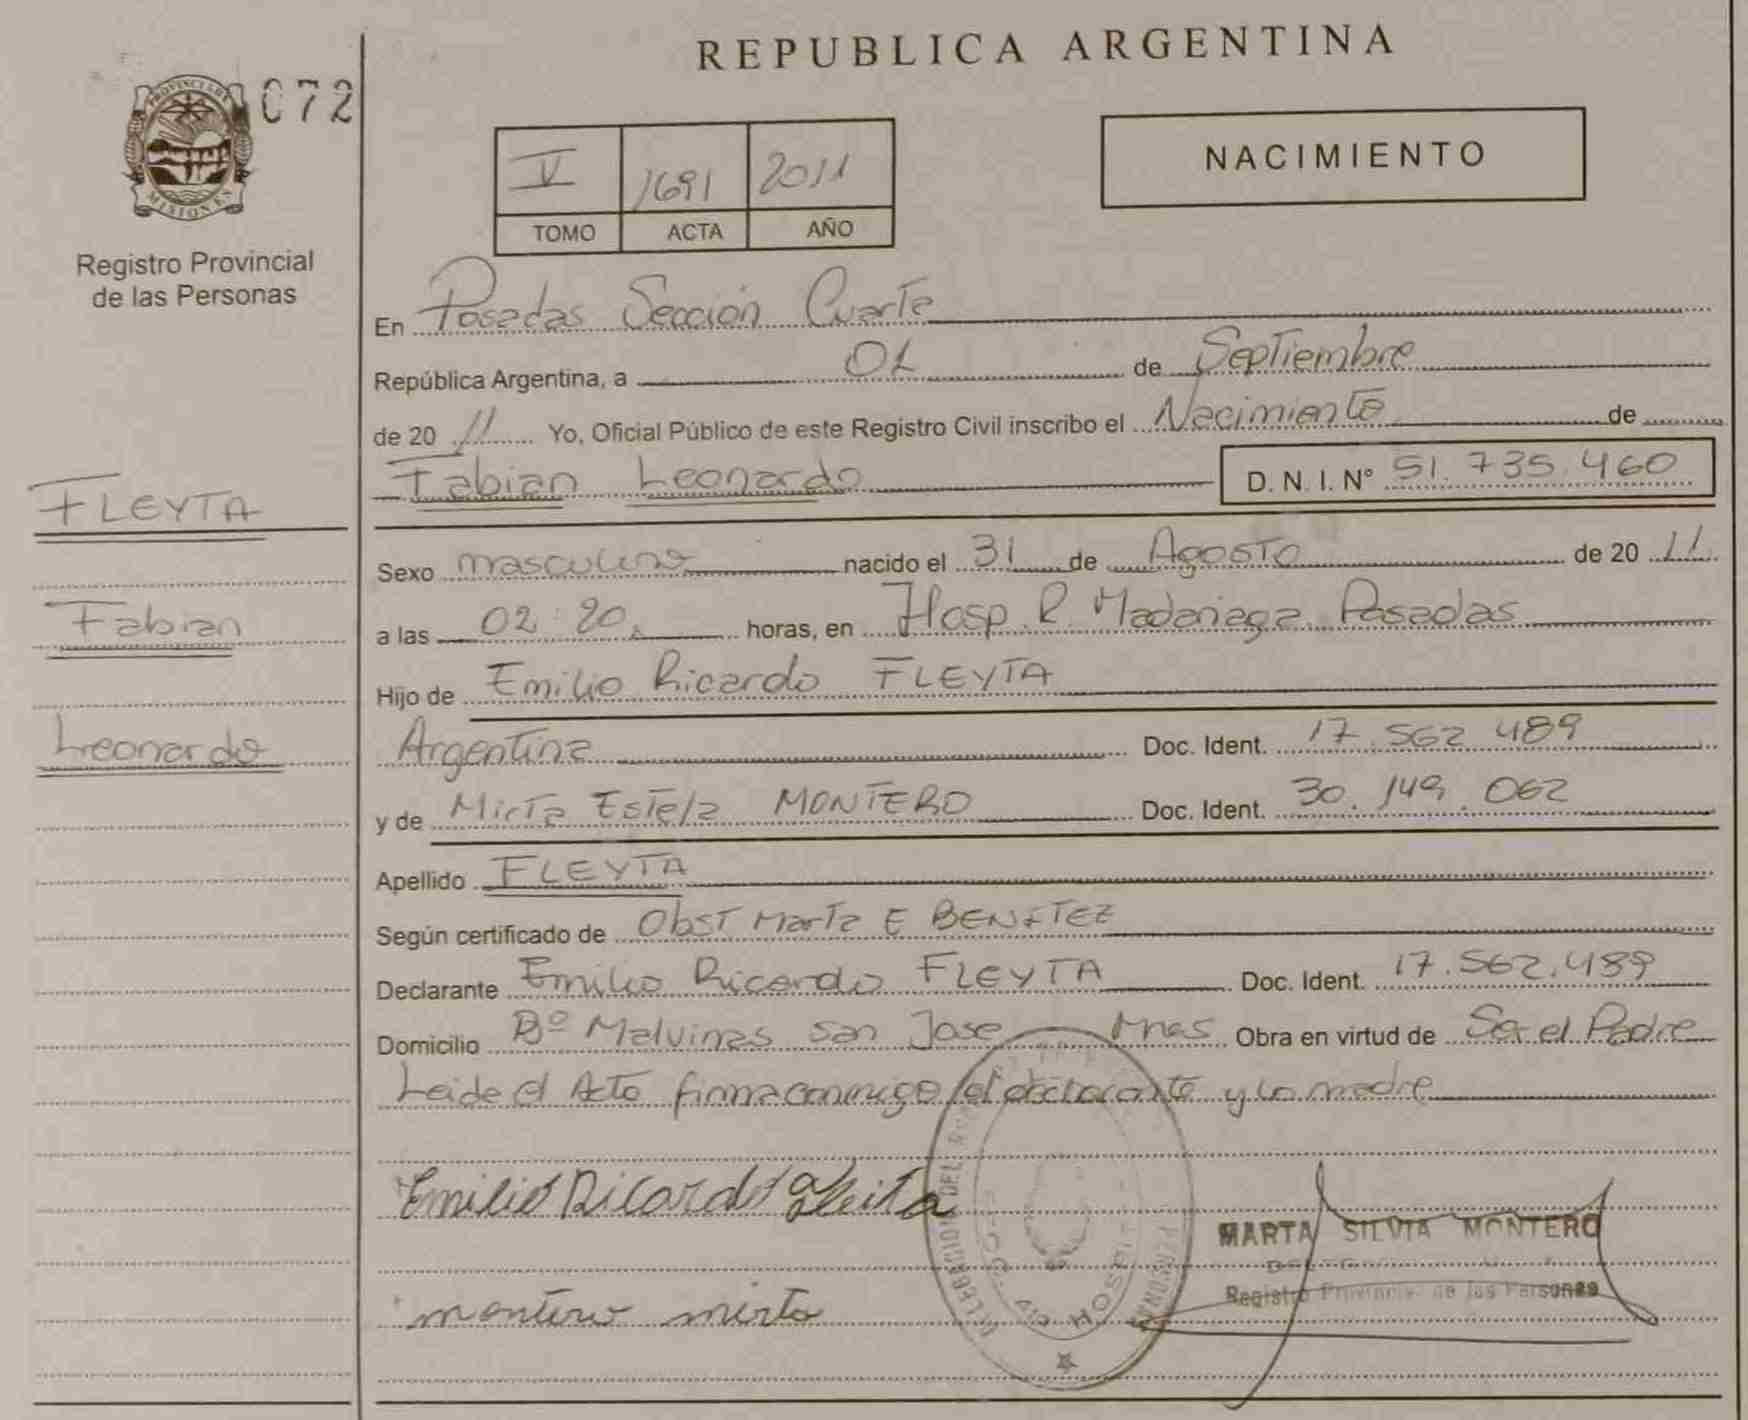 REPUBLICA ARGENTINA
PROVINCIA DE MISIONES
072
Registro Provincial
de las Personas
NACIMIENTO
V 1691 2011
TOMO ACTA AÑO
En Posadas Sección Cuarta
República Argentina, a 01 de Septiembre
de 20 11 Yo, Oficial Público de este Registro Civil inscribo el Nacimiento de
Fabian Leonardo D. N. I. N° 51.735.460
FLEYTA
Fabian
Leonardo
Sexo masculino nacido el 31 de Agosto de 20 11
a las 02:20. horas, en Hosp. R. Madariaga Posadas
Hijo de Emilio Ricardo FLEYTA
Argentina Doc. Ident. 17.562.489
y de Mirta Estela MONTERO Doc. Ident. 30.149.062
Apellido FLEYTA
Según certificado de Obst Marta E BENITEZ
Declarante Emilio Ricardo FLEYTA Doc. Ident. 17.562.489
Domicilio Bº Malvinas San Jose Mnes Obra en virtud de Ser el Padre
Leida el Acta firma conmigo el declarante y la madre
Emilio Ricardo fleita
montero mirta
MARTA SILVIA MONTERO
Registro Provincial de las Personas